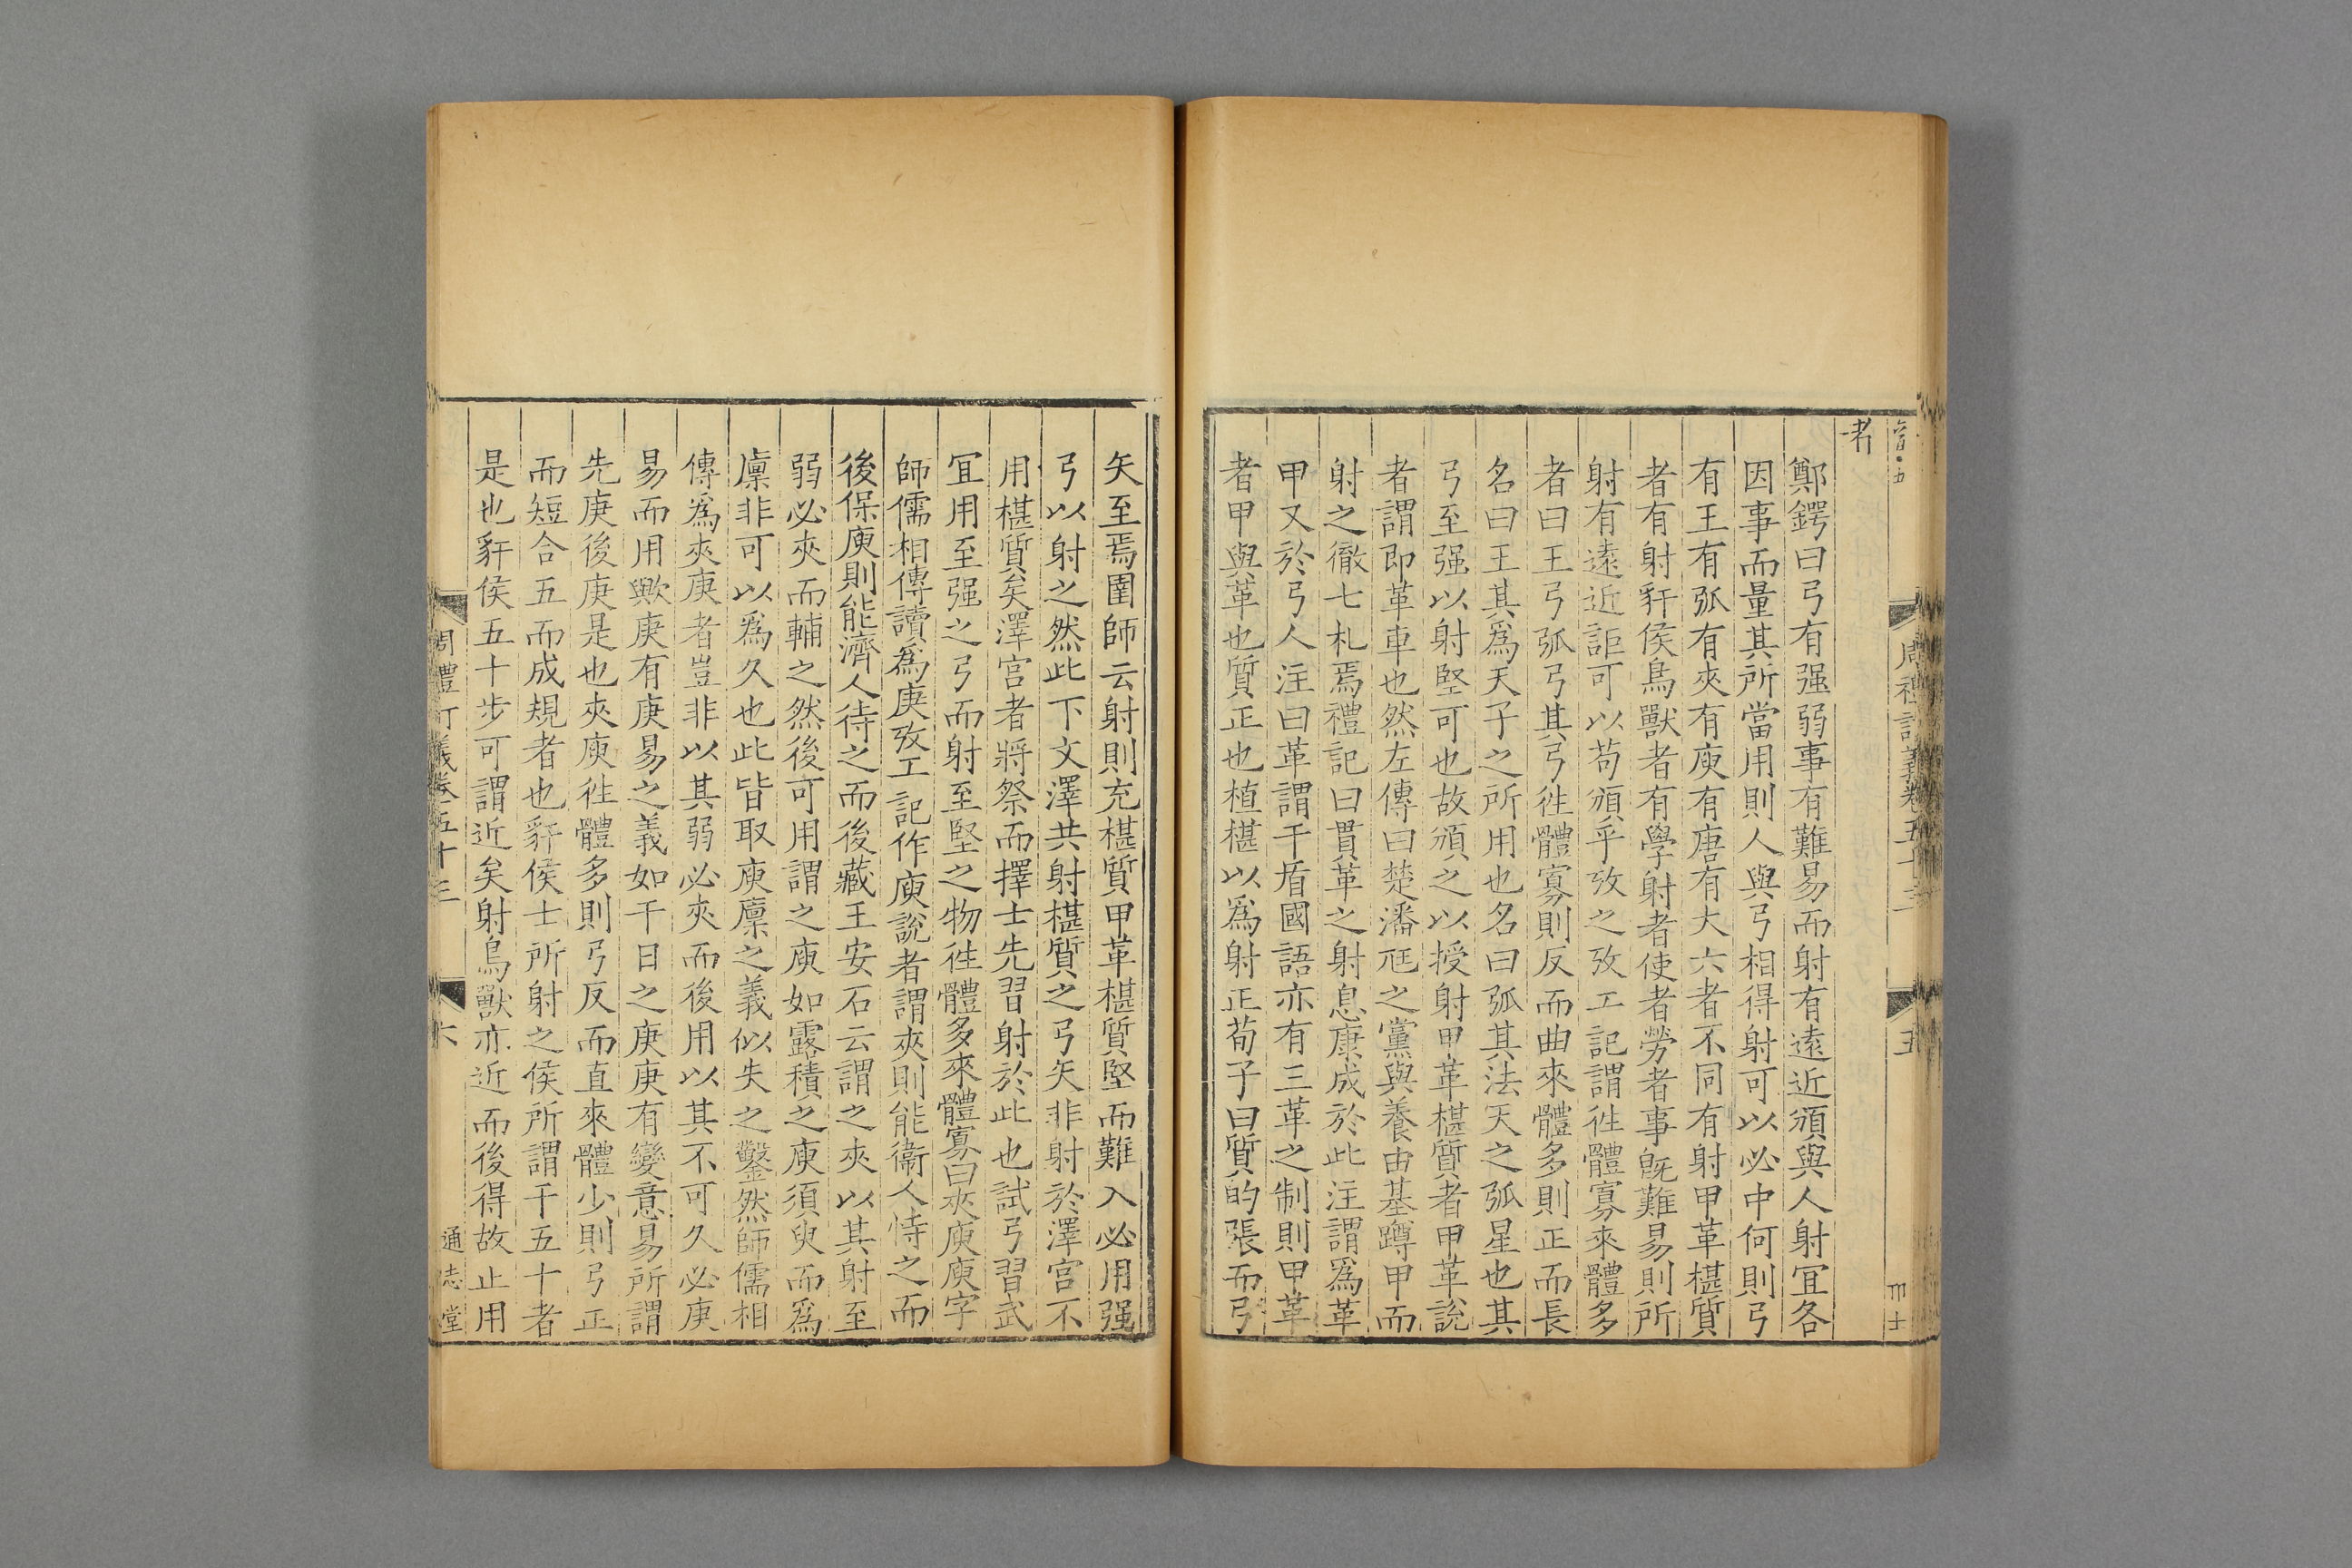 者
鄭鍔曰弓有强弱事有難易而射有遠近頒與人射宜各
因事而量其所當用則人與弓相得射可以必中何則弓
有王有弧有夾有庾有唐有大六者不同有射甲革椹質
者有射豻侯鳥獸者有學射者使者勞者事旣難易則所
射有遠近詎可以苟頒乎攷之攷工記謂徃體寡來體多
者曰王弓弧弓其弓徃體寡則反而曲來體多則正而長
名曰王其爲天子之所用也名曰弧其法天之弧星也其
弓至强以射堅可也故頒之以授射甲革椹質者甲革說
者謂即革車也然左傳曰楚潘尫之黨與養由基蹲甲而
射之徹七札焉禮記曰貫革之射息康成於此注謂爲革
甲又於弓人注曰革謂干盾國語亦有三革之制則甲革
者甲與革也質正也植椹以爲射正荀子曰質的張而弓
矢至焉圉師云射則充椹質甲革椹質堅而難入必用强
弓以射之然此下文澤共射椹質之弓矢非射於澤宮不
用椹質矣澤宮者將祭而擇士先習射於此也試弓習武
宜用至强之弓而射至堅之物徃體多來體寡曰夾庾庾字
師儒相傳讀爲庚攷工記作庾說者謂夾則能衞人恃之而
後保庾則能濟人待之而後藏王安石云謂之夾以其射至
弱必夾而輔之然後可用謂之庾如露積之庾須臾而爲
廩非可以爲久也此皆取庾廩之義似失之鑿然師儒相
傳爲夾庚者豈非以其弱必夾而後用以其不可久必庚
易而用歟庚有庚易之義如干日之庚庚有變意易所謂
先庚後庚是也夾庾徃體多則弓反而直來體少則弓正
而短合五而成規者也豻侯士所射之侯所謂干五十者
是也豻侯五十步可謂近矣射鳥獸亦近而後得故止用
周禮訂義卷五十三
六
通志堂